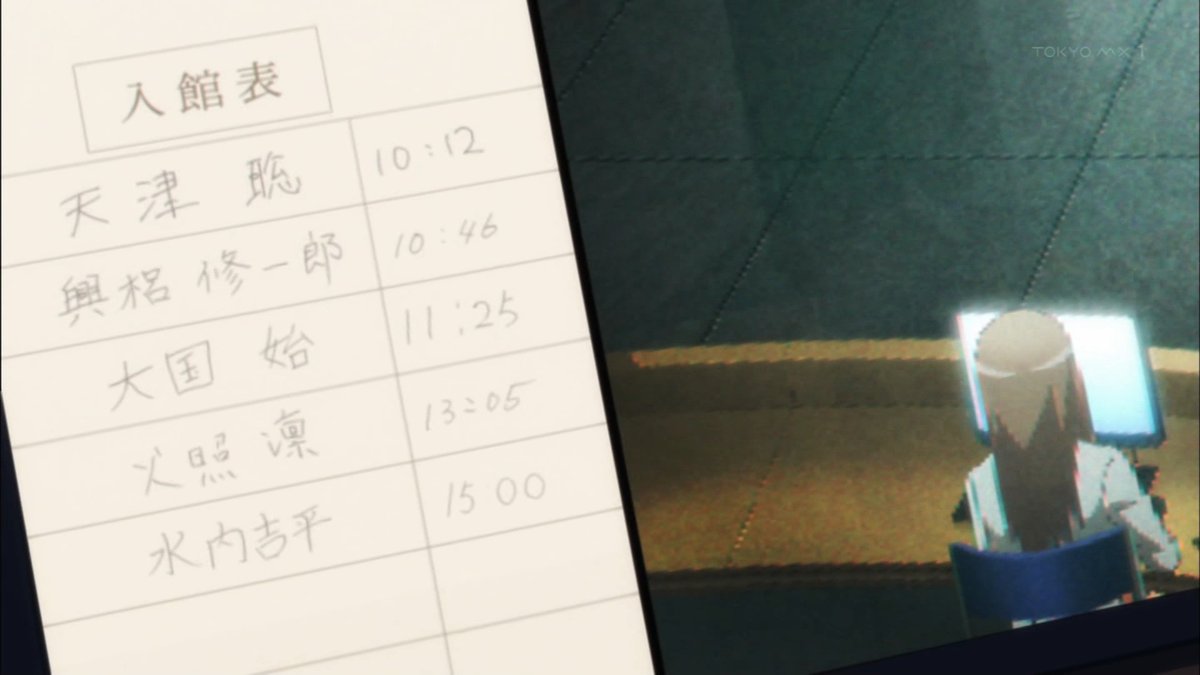 TOKYO MX 1
入館表
天津 聡 10:12
興梠 修一郎 10:46
大国 始 11:25
火照 凛 13:05
水内吉平 15 00